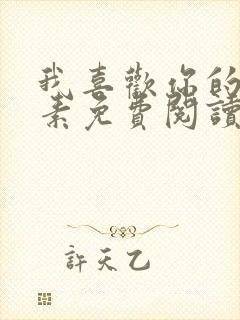 我喜歡你的
素免費閱讀
許天乙